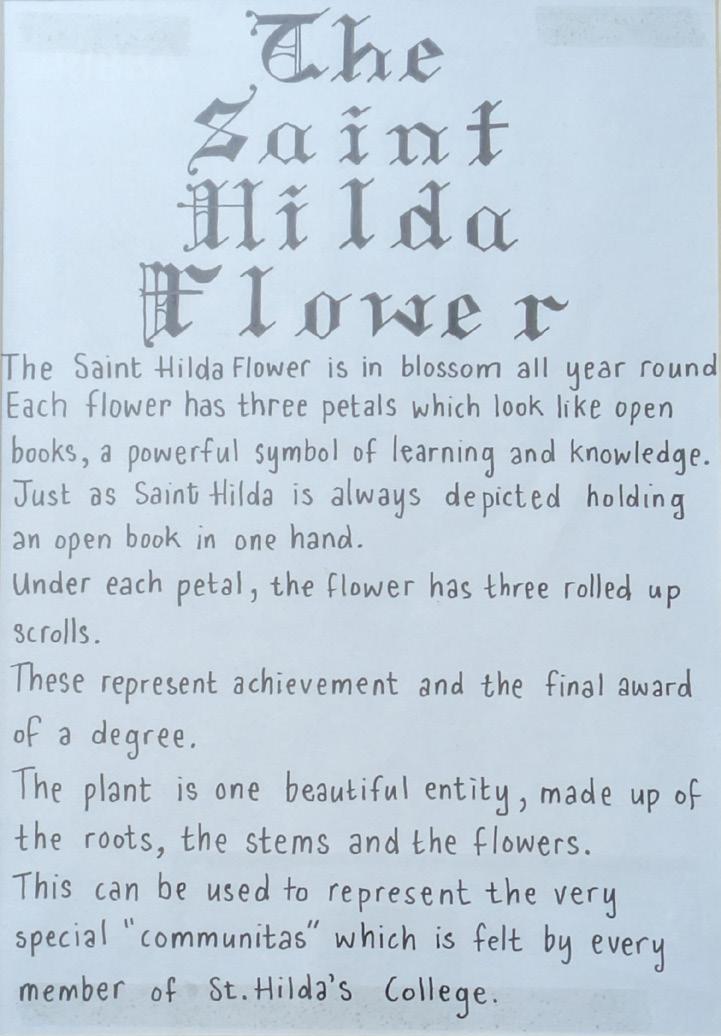 The
Saint
Hilda
Flower
The Saint Hilda Flower is in blossom all year round
Each flower has three petals which look like open
books, a powerful symbol of learning and knowledge.
Just as Saint Hilda is always depicted holding
an open book in one hand.
Under each petal, the flower has three rolled up
scrolls.
These represent achievement and the final award
of a degree.
The plant is one beautiful entity, made up of
the roots, the stems and the flowers.
This can be used to represent the very
special "communitas" which is felt by every
member of St. Hilda's College.